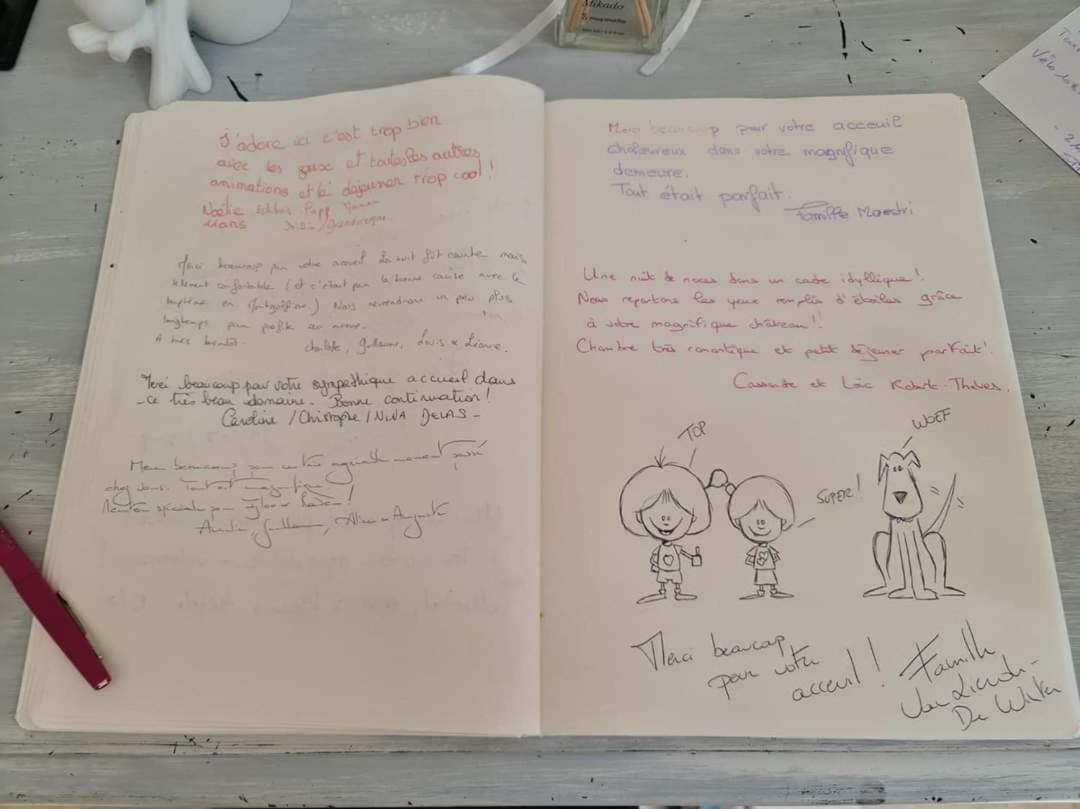 Mikado
J'adore ici c'est trop bien
avec les jeux et toutes les autres
animations et le dejeuner trop cool!
Noélie
Merci beaucoup pour votre accueil La nuit fût courte mais
tellement confortable (et c'était pour la bonne cause avec le
baptême en Montgolfière.) Nous reviendrons un peu plus
longtemps pour profiter
A très bientôt. Charlotte, Guillaume, Louis &
Merci beaucoup pour votre sympathique accueil dans
ce très beau domaine. Bonne continuation!
Caroline / Christophe / NINA DELAS -
Merci beaucoup pour ce très agréable moment passé
chez vous. Tout est magnifique
Mention spéciale pour
Merci beaucoup pour votre acceuil
chaleureux dans votre magnifique
demeure.
Tout était parfait.
Famille Maestri
Une nuit de noces dans un cadre idyllique!
Nous repartons les yeux remplis d'étoiles grâce
à votre magnifique château!!
Chambre très romantique et petit déjeuner parfait!
et Loïc Robert
TOP
SUPER!
WOEF
Merci beaucoup
pour votre
acceuil!
Famille
De